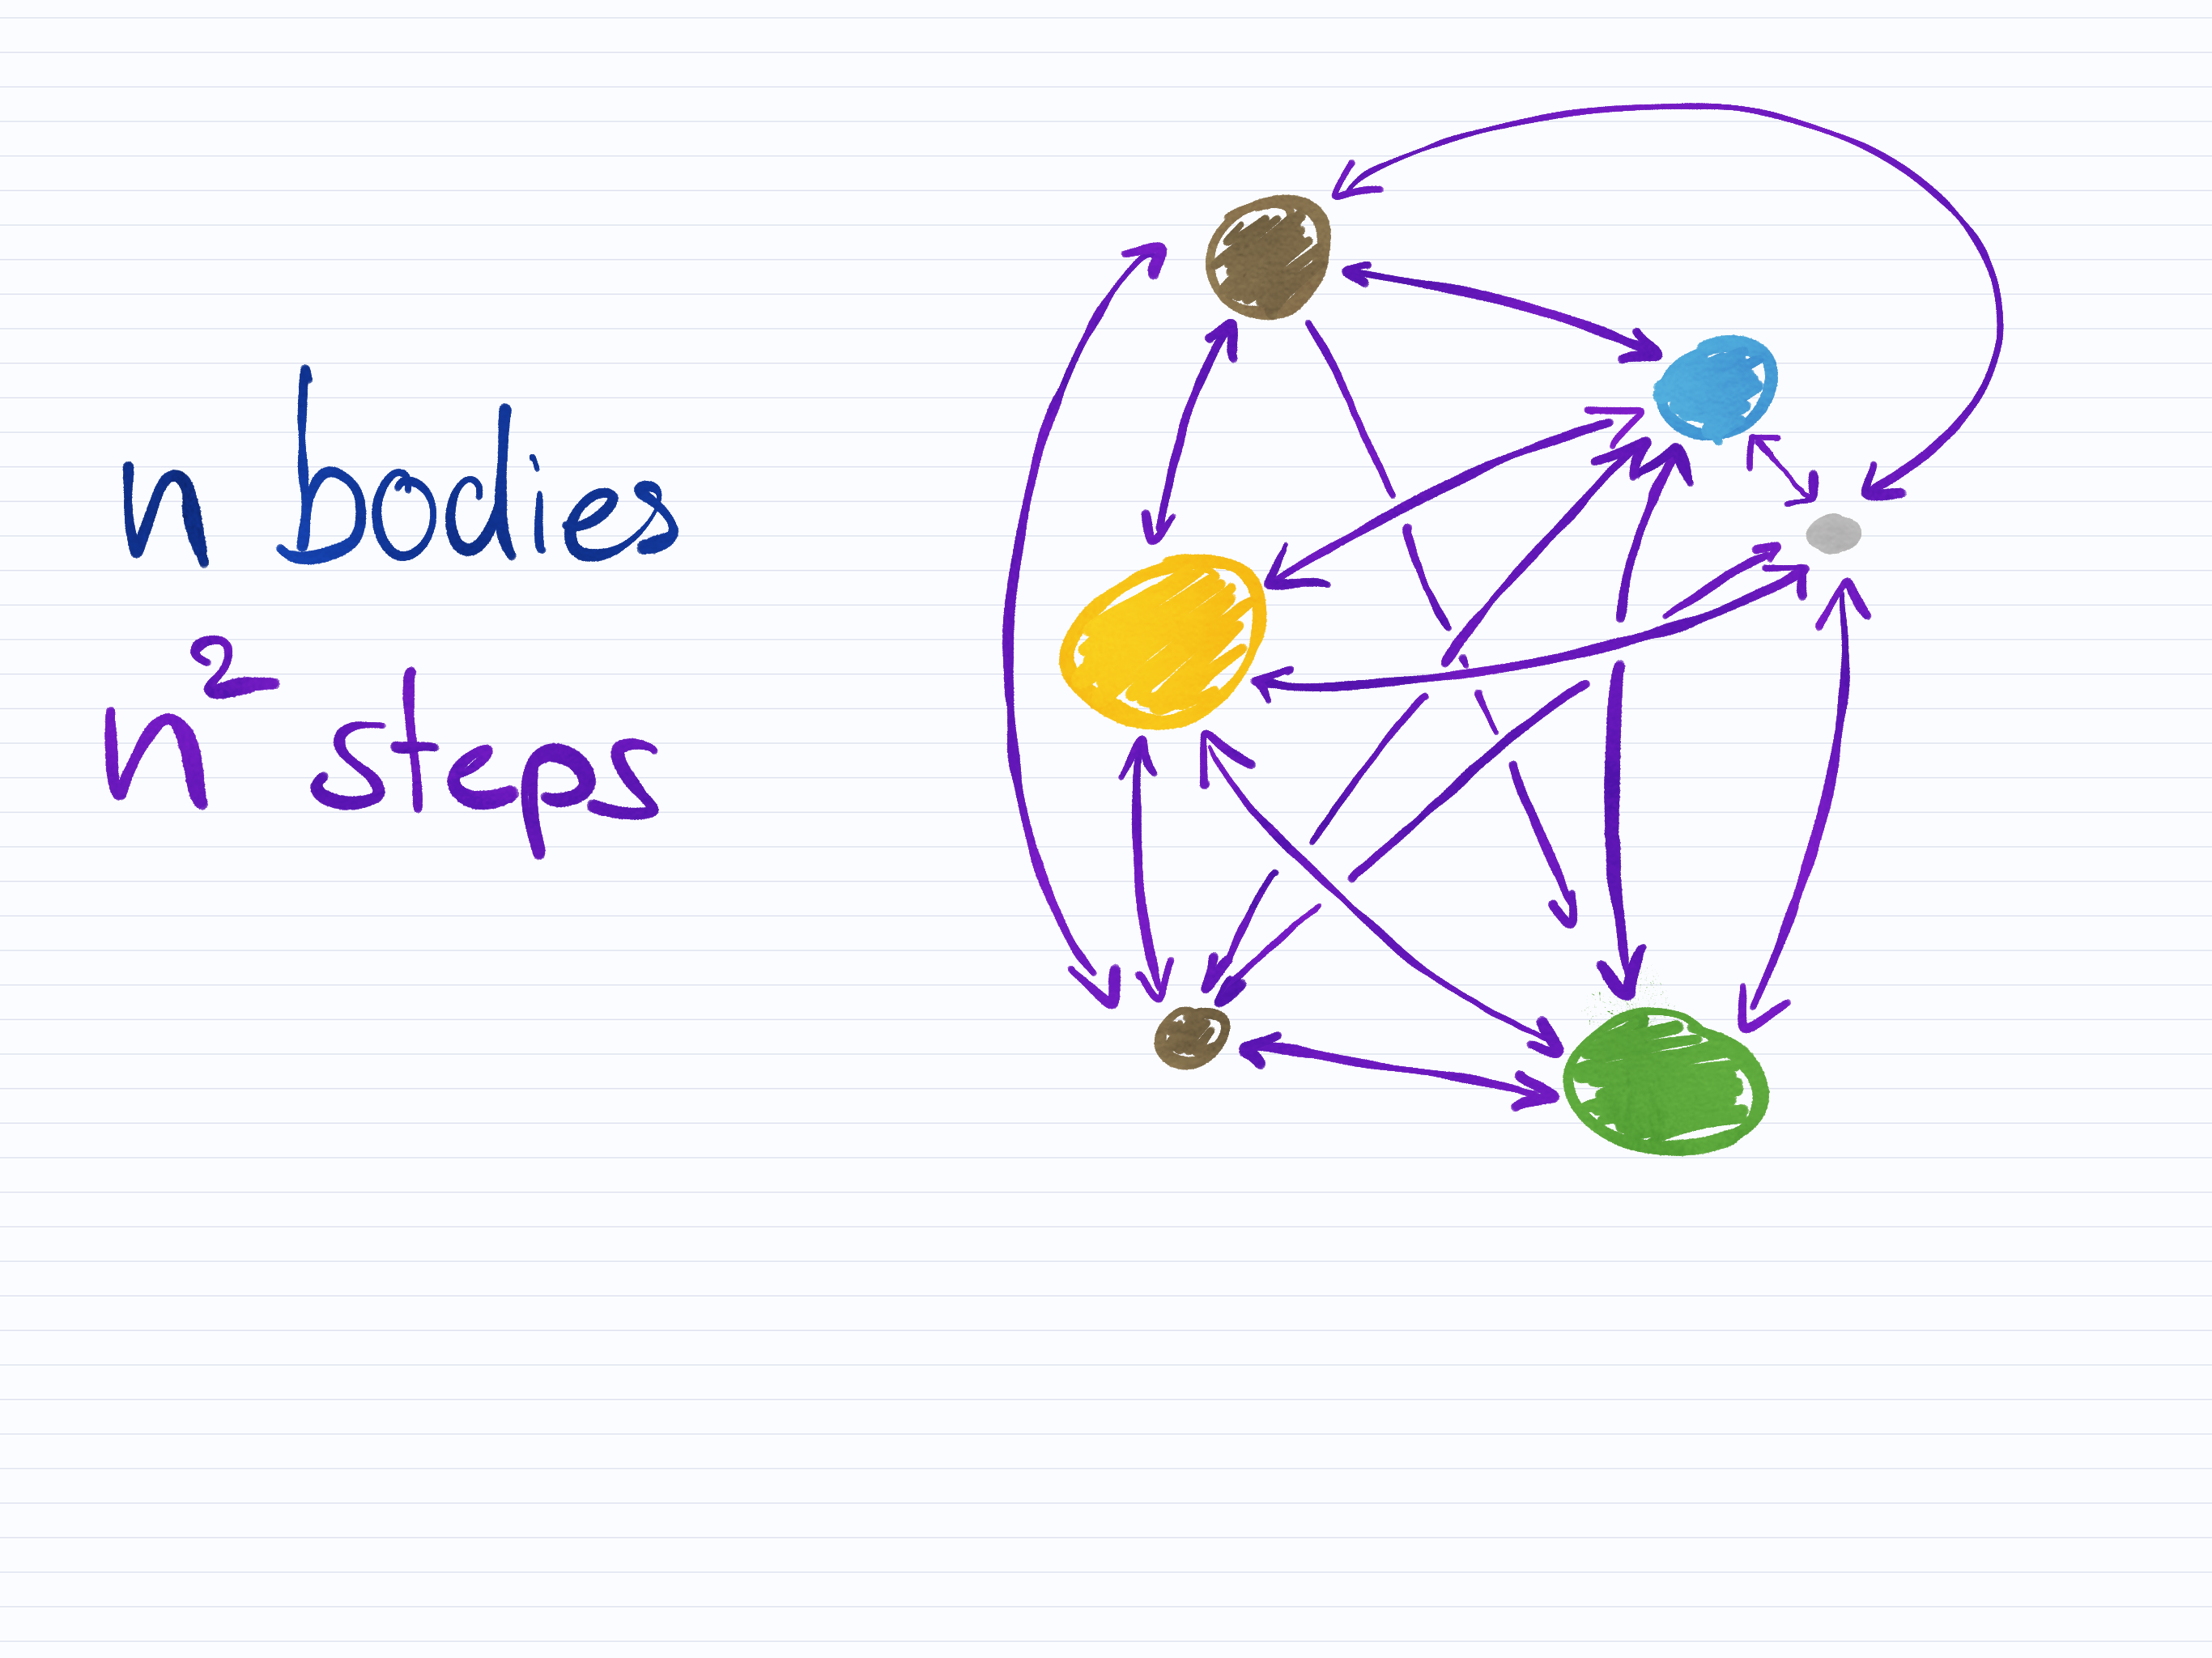 n bodies
n² steps